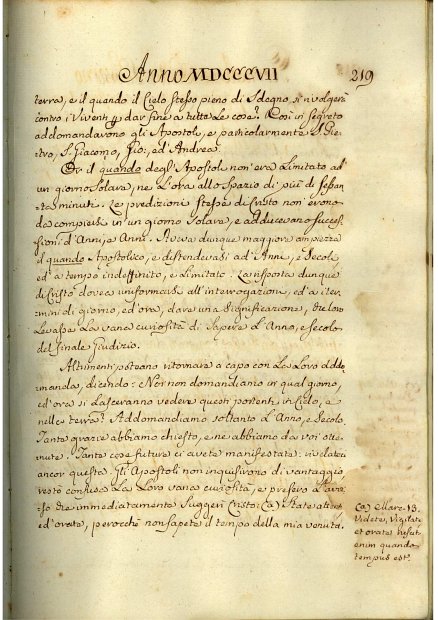 Anno MDCCCVII
219
terra, e il quando il Cielo stesso pieno di Sdegno, si rivolgerà
contro i Viventi p dar fine a tutte le cose? Così in segreto
addomandavano gli Apostoli, e particolarmente S. Pie-
tro, S. Giacomo, Gio:, ed Andrea.
Or il quando degl'Apostoli non era Limitato ad
un giorno Solare, ne l'ora allo Spazio di più di Sessan-
ta minuti. Le predizioni stesse di Cristo non erono
da compiersi in un giorno Solare, e adducevano succes-
sion d'Anni, e Anni. Aveva dunque maggiore ampiezza
il quando Apostolico, e distendevasi ad Anni, e Secoli
ed a tempo indeffinito, e Limitato. La risposta dunque
di Cristo dovea uniformarsi all'interrogazione, ed a i ter-
mini di giorno, ed ora, dare una Significazione, che loro
Levasse La vana curiosità di Sapere l'Anno, e Secolo
del finale Giudizio.
Altrimenti poteano ritornare a capo con La Loro Addo-
manda, dicendo: Noi non domandiamo in qual giorno,
ed ora si Lasceranno vedere questi portenti in Cielo, e
nella terra? Addomandiamo soltanto L'Anno, e Secolo.
Tante grazie abbiamo chiesto, e ne abbiamo da voi otte-
nute. Tante cose future ci avete manifestate: rivelateci
ancor questa. Gli Apostoli non inquisirono di vantaggio
restò La Loro vana curiosità, e presero L'avvi-
so che immediatamente Suggerì Cristo: (a) State attenti
ed orate, perocchè non sapete il tempo della mia venuta.
(a) Marc. 13.
Videte, Vigilate
et orate nescitis
enim quando
tempus est.